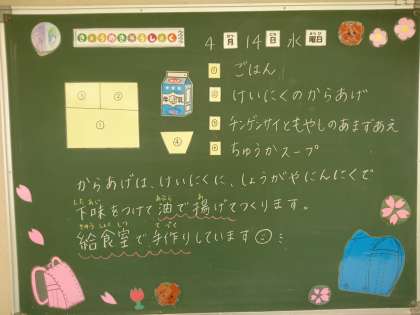 きょうのきゅうしょく
4月14日水曜日
① ごはん
② けいにくのからあげ
③ チンゲンサイともやしのあまずあえ
④ ちゅうかスープ
③ ②
①
④
牛乳
からあげは、けいにくに、しょうがやにんにくで
下味をつけて油で揚げてつくります。
給食室で手作りしています